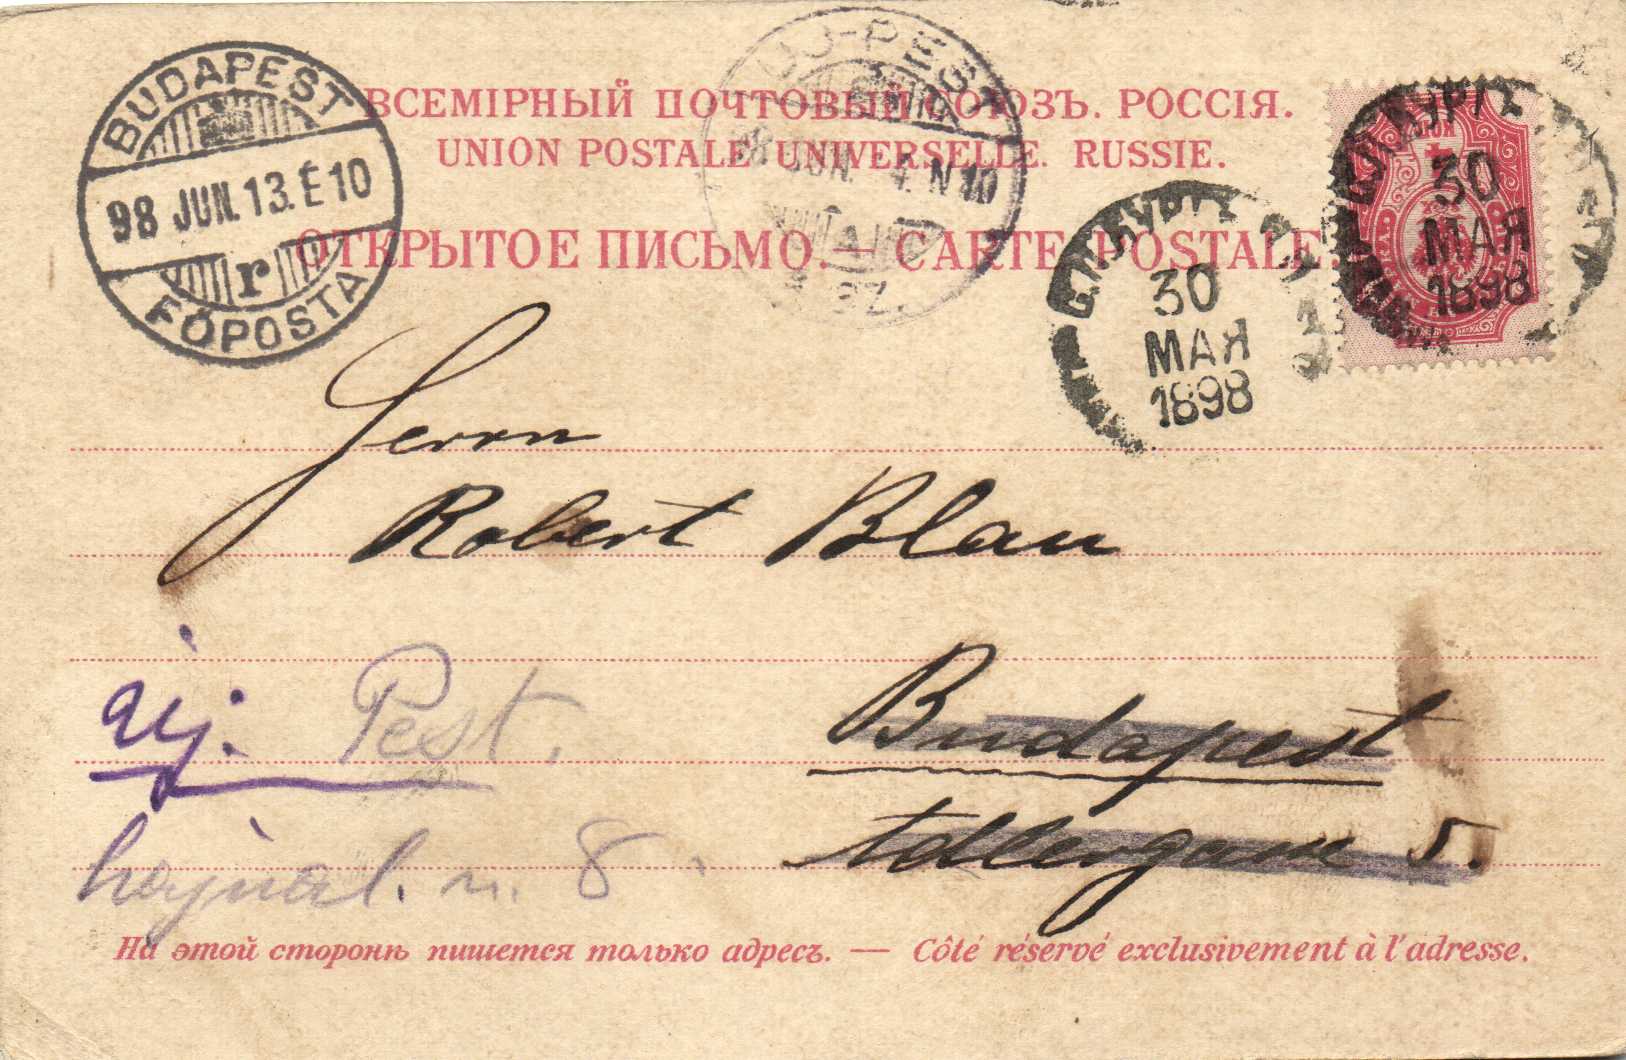 ВСЕМІРНЫЙ ПОЧТОВЫЙ СОЮЗЪ. РОССІЯ.
UNION POSTALE UNIVERSELLE. RUSSIE.
ОТКРЫТОЕ ПИСЬМО. — CARTE POSTALE.
BUDAPEST
98 JUN. 13. É 10
r
FŐPOSTA
UJ-PEST
98 JUN. 4. N 10
С.ПЕТЕРБУРГЪ
30
МАЯ
1898
30
МАЯ
1898
Herrn
Robert Blau
Budapest
Adlergasse 5.
Uj. Pest.
hajnal. u. 8
На этой сторонѣ пишется только адресъ. — Côté réservé exclusivement à l'adresse.